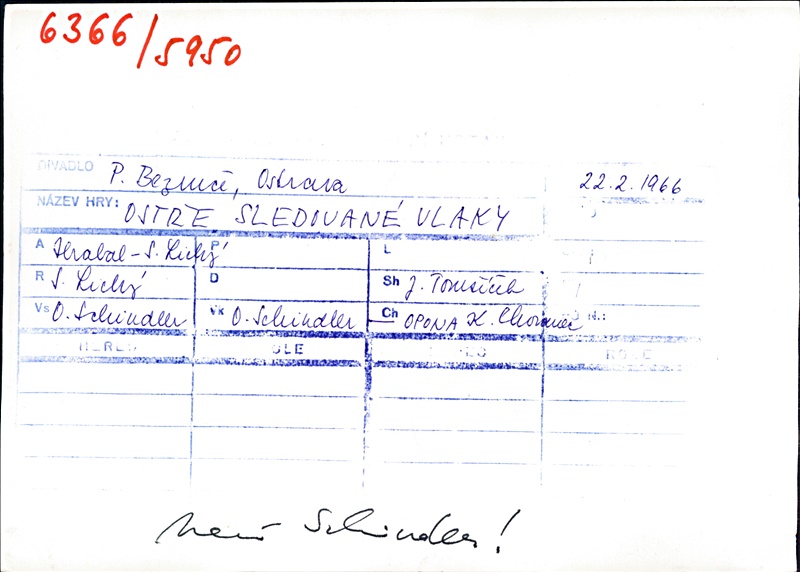 6366/5950
DIVADLO P. Bezruče, Ostrava 22.2.1966
NÁZEV HRY: OSTŘE SLEDOVANÉ VLAKY
A Hrabal-S. Lichý P L
R S. Lichý D Sh J. Tomšíček
Vs O. Schindler Vk O. Schindler Ch OPONA K. N.:
HEREC ROLE ROLE
není Schindler!